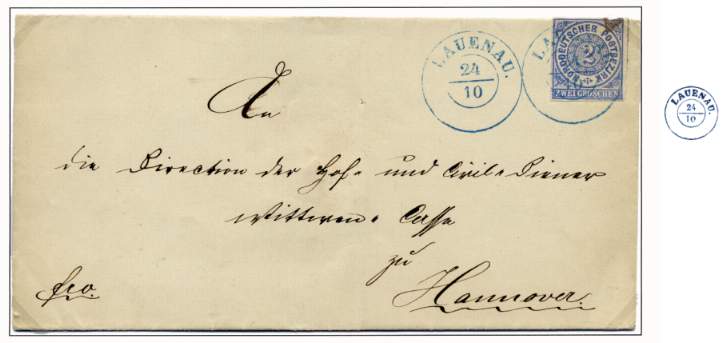 LAUENAU.
24
10
LA
NORDDEUTSCHER POSTBEZIRK
2
ZWEI GROSCHEN
LAUENAU.
24
10
An
die Direction der Hof- und Civil-Diener
Wittwen-Casse
zu
fco.
Hannover.